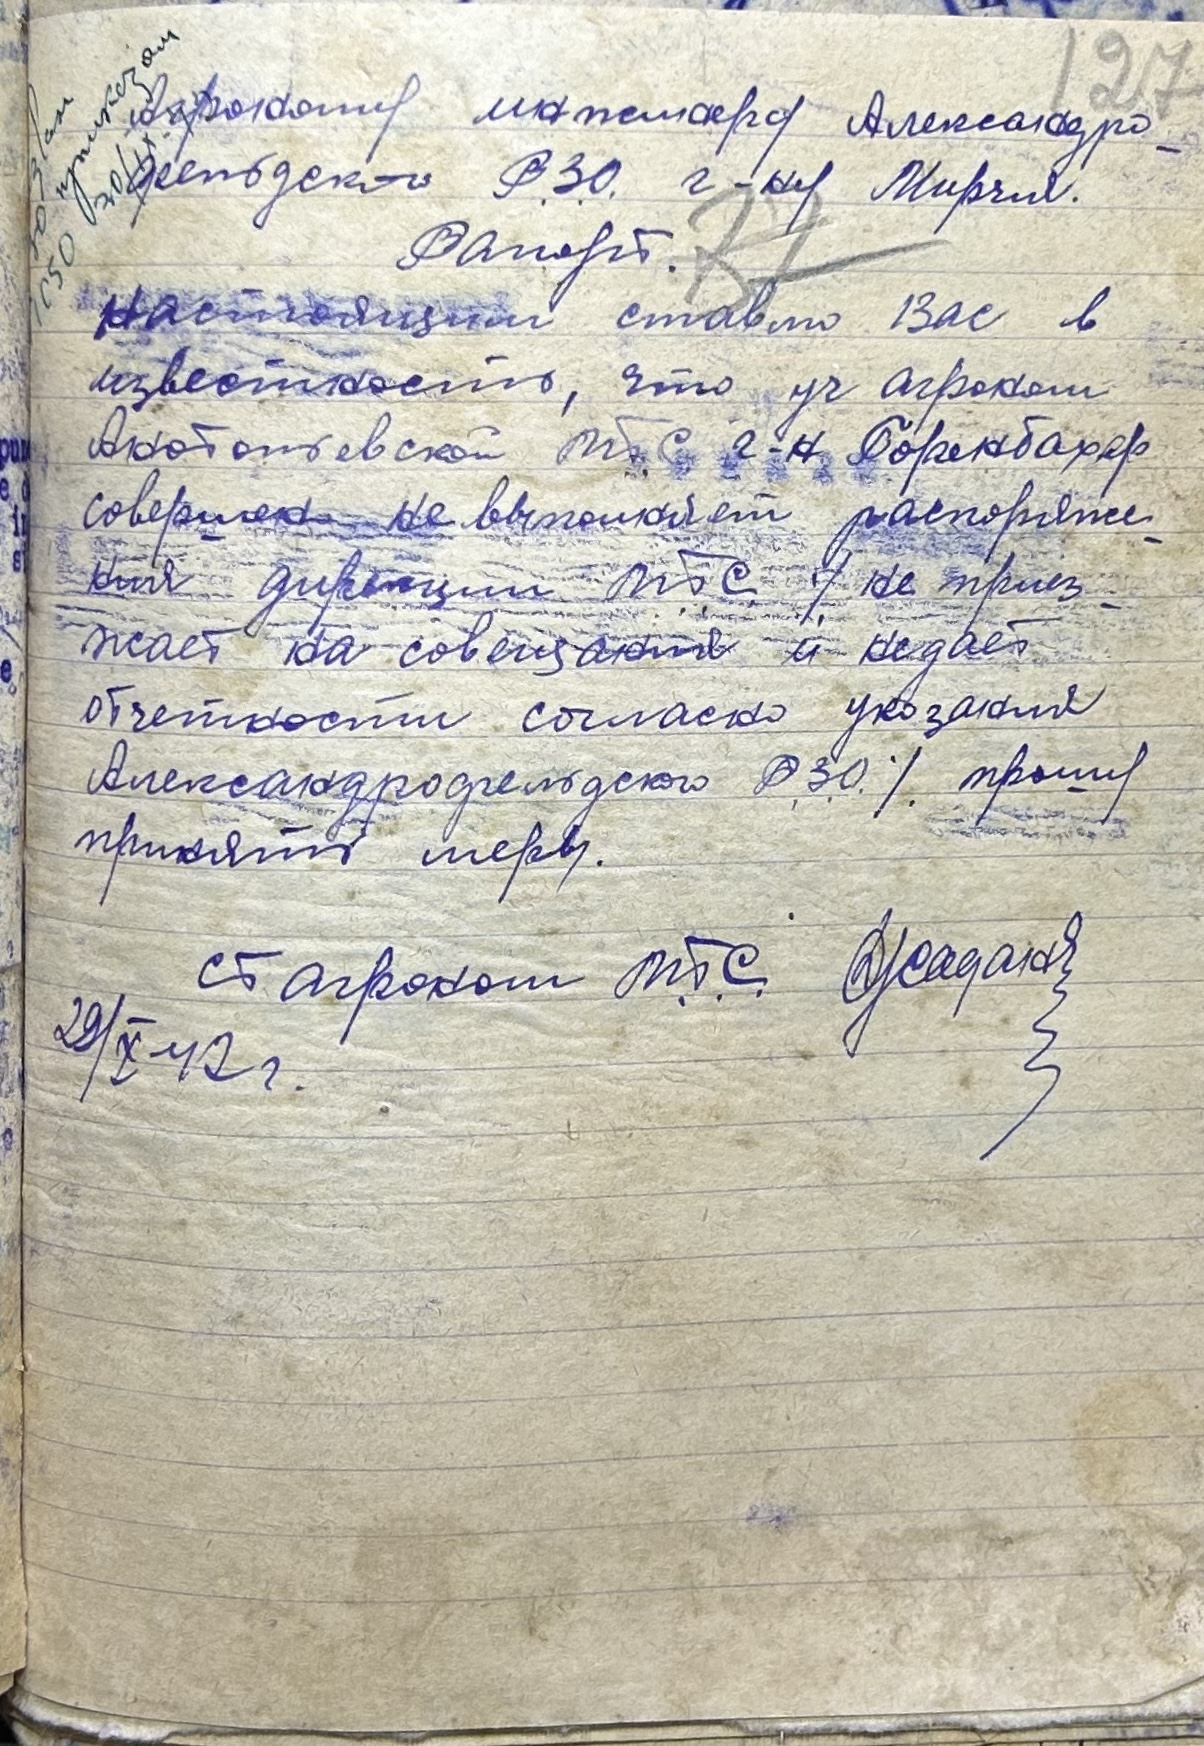 127
Агроному инженеру Александро-
фельдского РЗО. г-ну Мирчя.
Рапорт.
37
Настоящим ставлю Вас в
известность, что уч агроном
МТС г-н Боренбахер
совершен не выполняет распоряже-
ния дирекции М.Т.С. /. не приез-
жает на совещания и не дает
отчетности согласно указания
Александрофельдского Р.З.О. /. прошу
принять меры.
Ст агроном М.Т.С.
29/X-42 г.